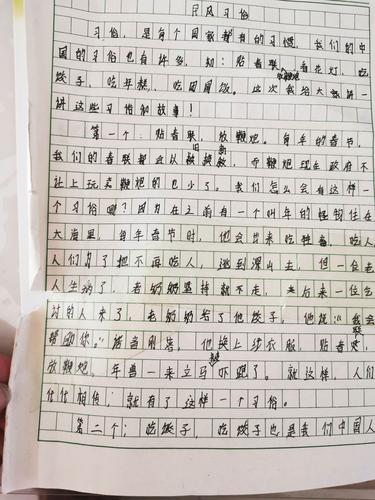 民风习俗
习俗，是每个国家都有的习惯，我们的中
国的习俗也有许多，如：贴春联、放鞭炮、看花灯、吃
饺子、吃年糕、吃团圆饭。这次我给大家讲一
讲这些习俗和故事！
第一个：贴春联，放鞭炮。每年的春节，
我们的春联都会从旧换新，而鞭炮现在政府不
让上玩卖鞭炮的也少了。我们怎么会有这样一
个习俗呢？因为在之前有一个叫年的怪物住在
大海里，每年春节时，他会出来吃牲畜，吃人
人们为了把不再吃人，逃到深山去，但一位老
人生病了，老奶奶坚持就不走，后来一位乞
讨的人来了，老奶奶给了他饺子，他说：“我会
帮助你。”话音刚落，他换上红衣服，贴春联，
放鞭炮。年兽一来立马被吓跑了。就这样，人们
代代相传，就有了这样一个习俗。
第二个：吃饺子，吃饺子也是我们中国人